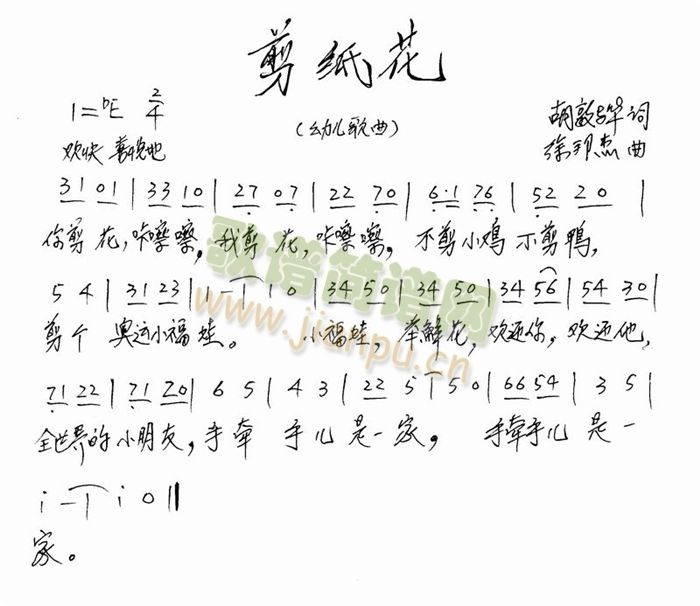 剪纸花
(幼儿歌曲)
1=bE 2/4
欢快 喜悦地
胡敦骅 词
徐邦杰 曲
31 01 | 33 10 | 27 07 | 22 70 | 6·1 76 | 52 20 |
你剪 花,咔嚓嚓,我剪 花,咔嚓嚓, 不剪小鸡 不剪鸭,
5 4 | 31 23 | 1 - | 1 0 | 34 50 | 34 50 | 34 56 | 54 30 |
剪个 奥运小福娃。 小福娃, 举鲜花,欢迎你,欢迎他,
71 22 | 71 20 | 6 5 | 4 3 | 22 5 | 5 0 | 66 54 | 3 5 |
全世界的小朋友,手牵 手儿 是一家, 手牵手儿 是 一
i - | i 0 ‖
家。
歌谱简谱网
www.jianpu.cn